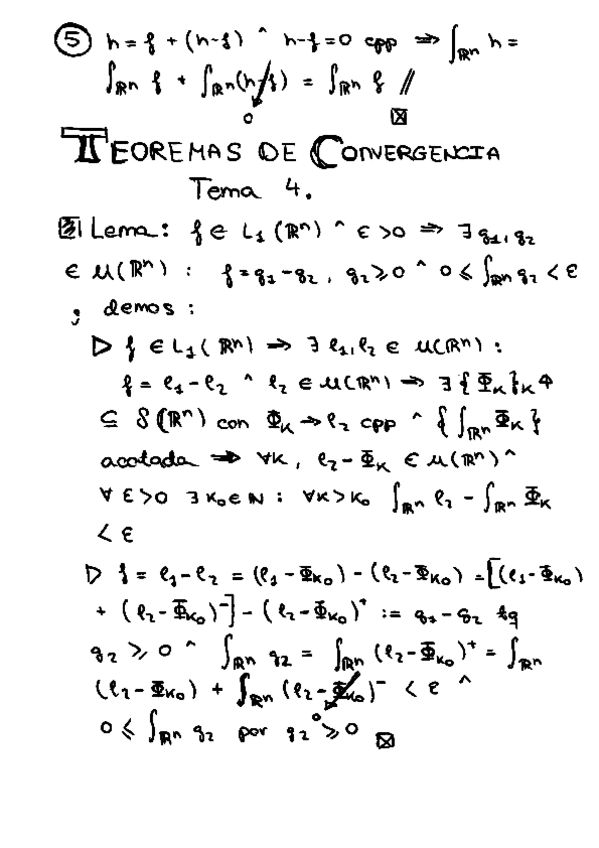 ⑤ h = f + (h-f) ^ h-f=0 cpp ⇒ ∫ℝⁿ h =
∫ℝⁿ f + ∫ℝⁿ(h-f) = ∫ℝⁿ f //
0 ☒
TEOREMAS DE CONVERGENCIA
Tema 4.
Lema: f ∈ L₁(ℝⁿ) ^ ε>0 ⇒ ∃ g₁, g₂
∈ U(ℝⁿ) : f=g₁-g₂, g₂⩾0 ^ 0 ⩽ ∫ℝⁿ g₂ < ε
; demos :
▷ f ∈ L₁(ℝⁿ) ⇒ ∃ l₁, l₂ ∈ U(ℝⁿ) :
f = l₁-l₂ ^ l₂ ∈ U(ℝⁿ) ⇒ ∃ {Φₖ}ₖ ↑
⊆ S(ℝⁿ) con Φₖ → l₂ cpp ^ {∫ℝⁿ Φₖ}
acotada ⇒ ∀k, l₂-Φₖ ∈ U(ℝⁿ) ^
∀ ε>0 ∃ k₀∈ℕ : ∀k>k₀ ∫ℝⁿ l₂ - ∫ℝⁿ Φₖ
< ε
▷ f = l₁-l₂ = (l₁-Φₖ₀) - (l₂-Φₖ₀) = [(l₁-Φₖ₀)
+ (l₂-Φₖ₀)⁻] - (l₂-Φₖ₀)⁺ := g₁-g₂ tq
g₂ ⩾ 0 ^ ∫ℝⁿ g₂ = ∫ℝⁿ (l₂-Φₖ₀)⁺ = ∫ℝⁿ
(l₂-Φₖ₀) + ∫ℝⁿ (l₂-Φₖ₀)⁻ < ε ^
0
0 ⩽ ∫ℝⁿ g₂ por g₂ ⩾ 0 ☒